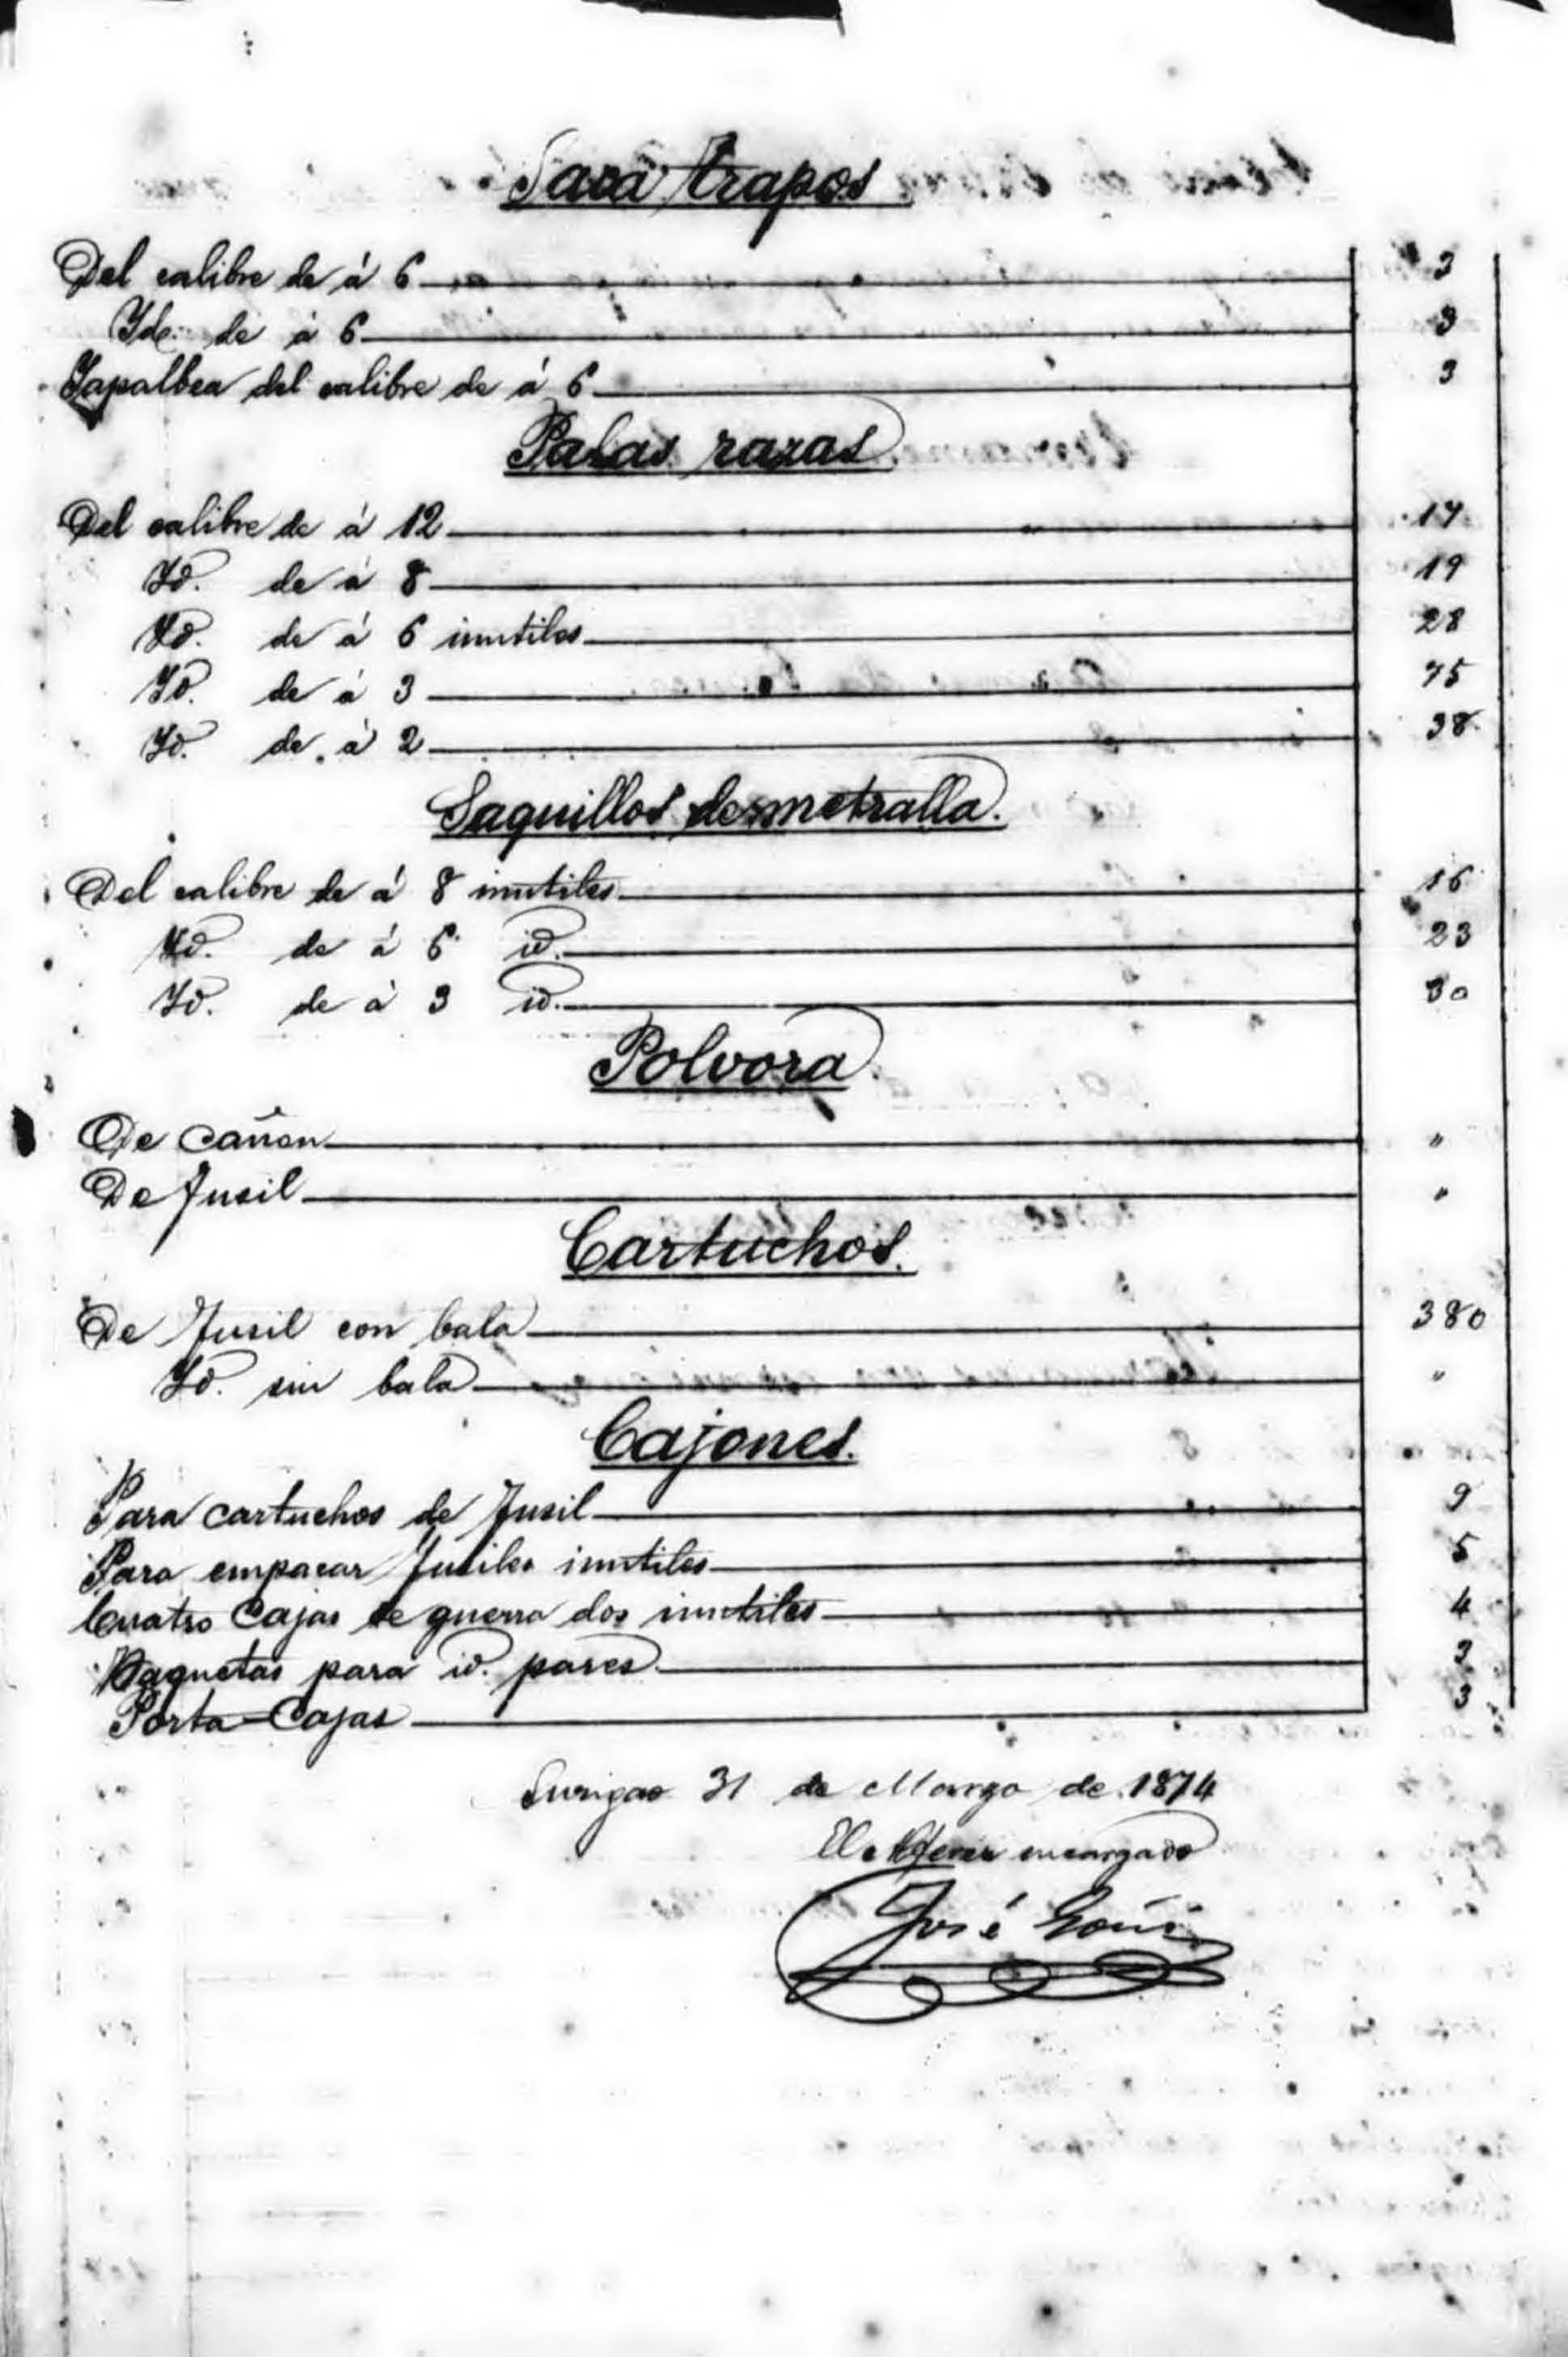 Saca trapos
Del calibre de á 6 3
Yd. de á 6 3
Tapalbca del calibre de á 6 3
Balas razas
Del calibre de á 12 17
Yd. de á 8 19
Yd. de á 6 inutiles 28
Yd. de á 3 75
Yd. de á 2 38
Saquillos de metralla.
Del calibre de á 8 inutiles 16
Yd. de á 6 id. 23
Yd. de á 3 id. 30
Polvora.
De cañon "
De fusil "
Cartuchos.
De fusil con bala 380
Yd. sin bala "
Cajones.
Para cartuchos de fusil 9
Para empacar fusiles inutiles 5
Cuatro Cajas de guerra dos inutiles 4
Baquetas para id. pares 3
Porta=Cajas 3
Surigao 31 de Marzo de 1874
El Alferez encargado
José Goñi